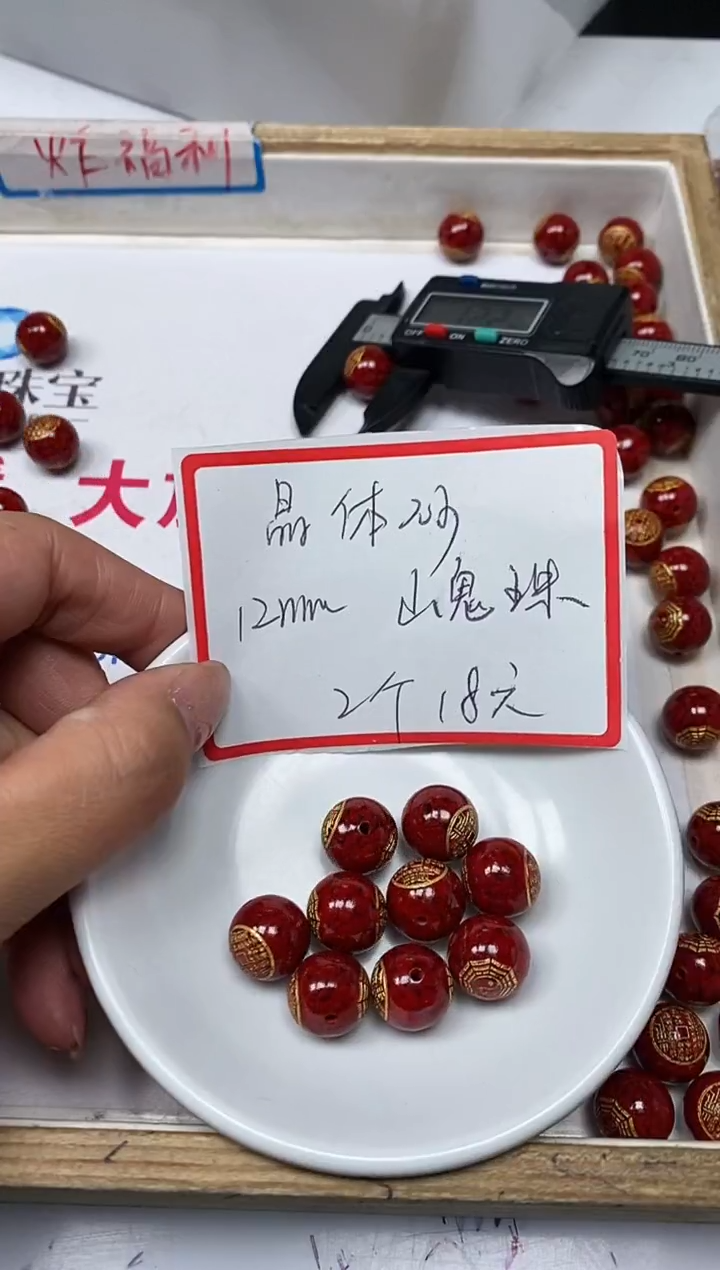 炸福利
OFF ON ZERO
70 80
珠宝
大
晶体砂
12mm 山鬼珠
2个 18元